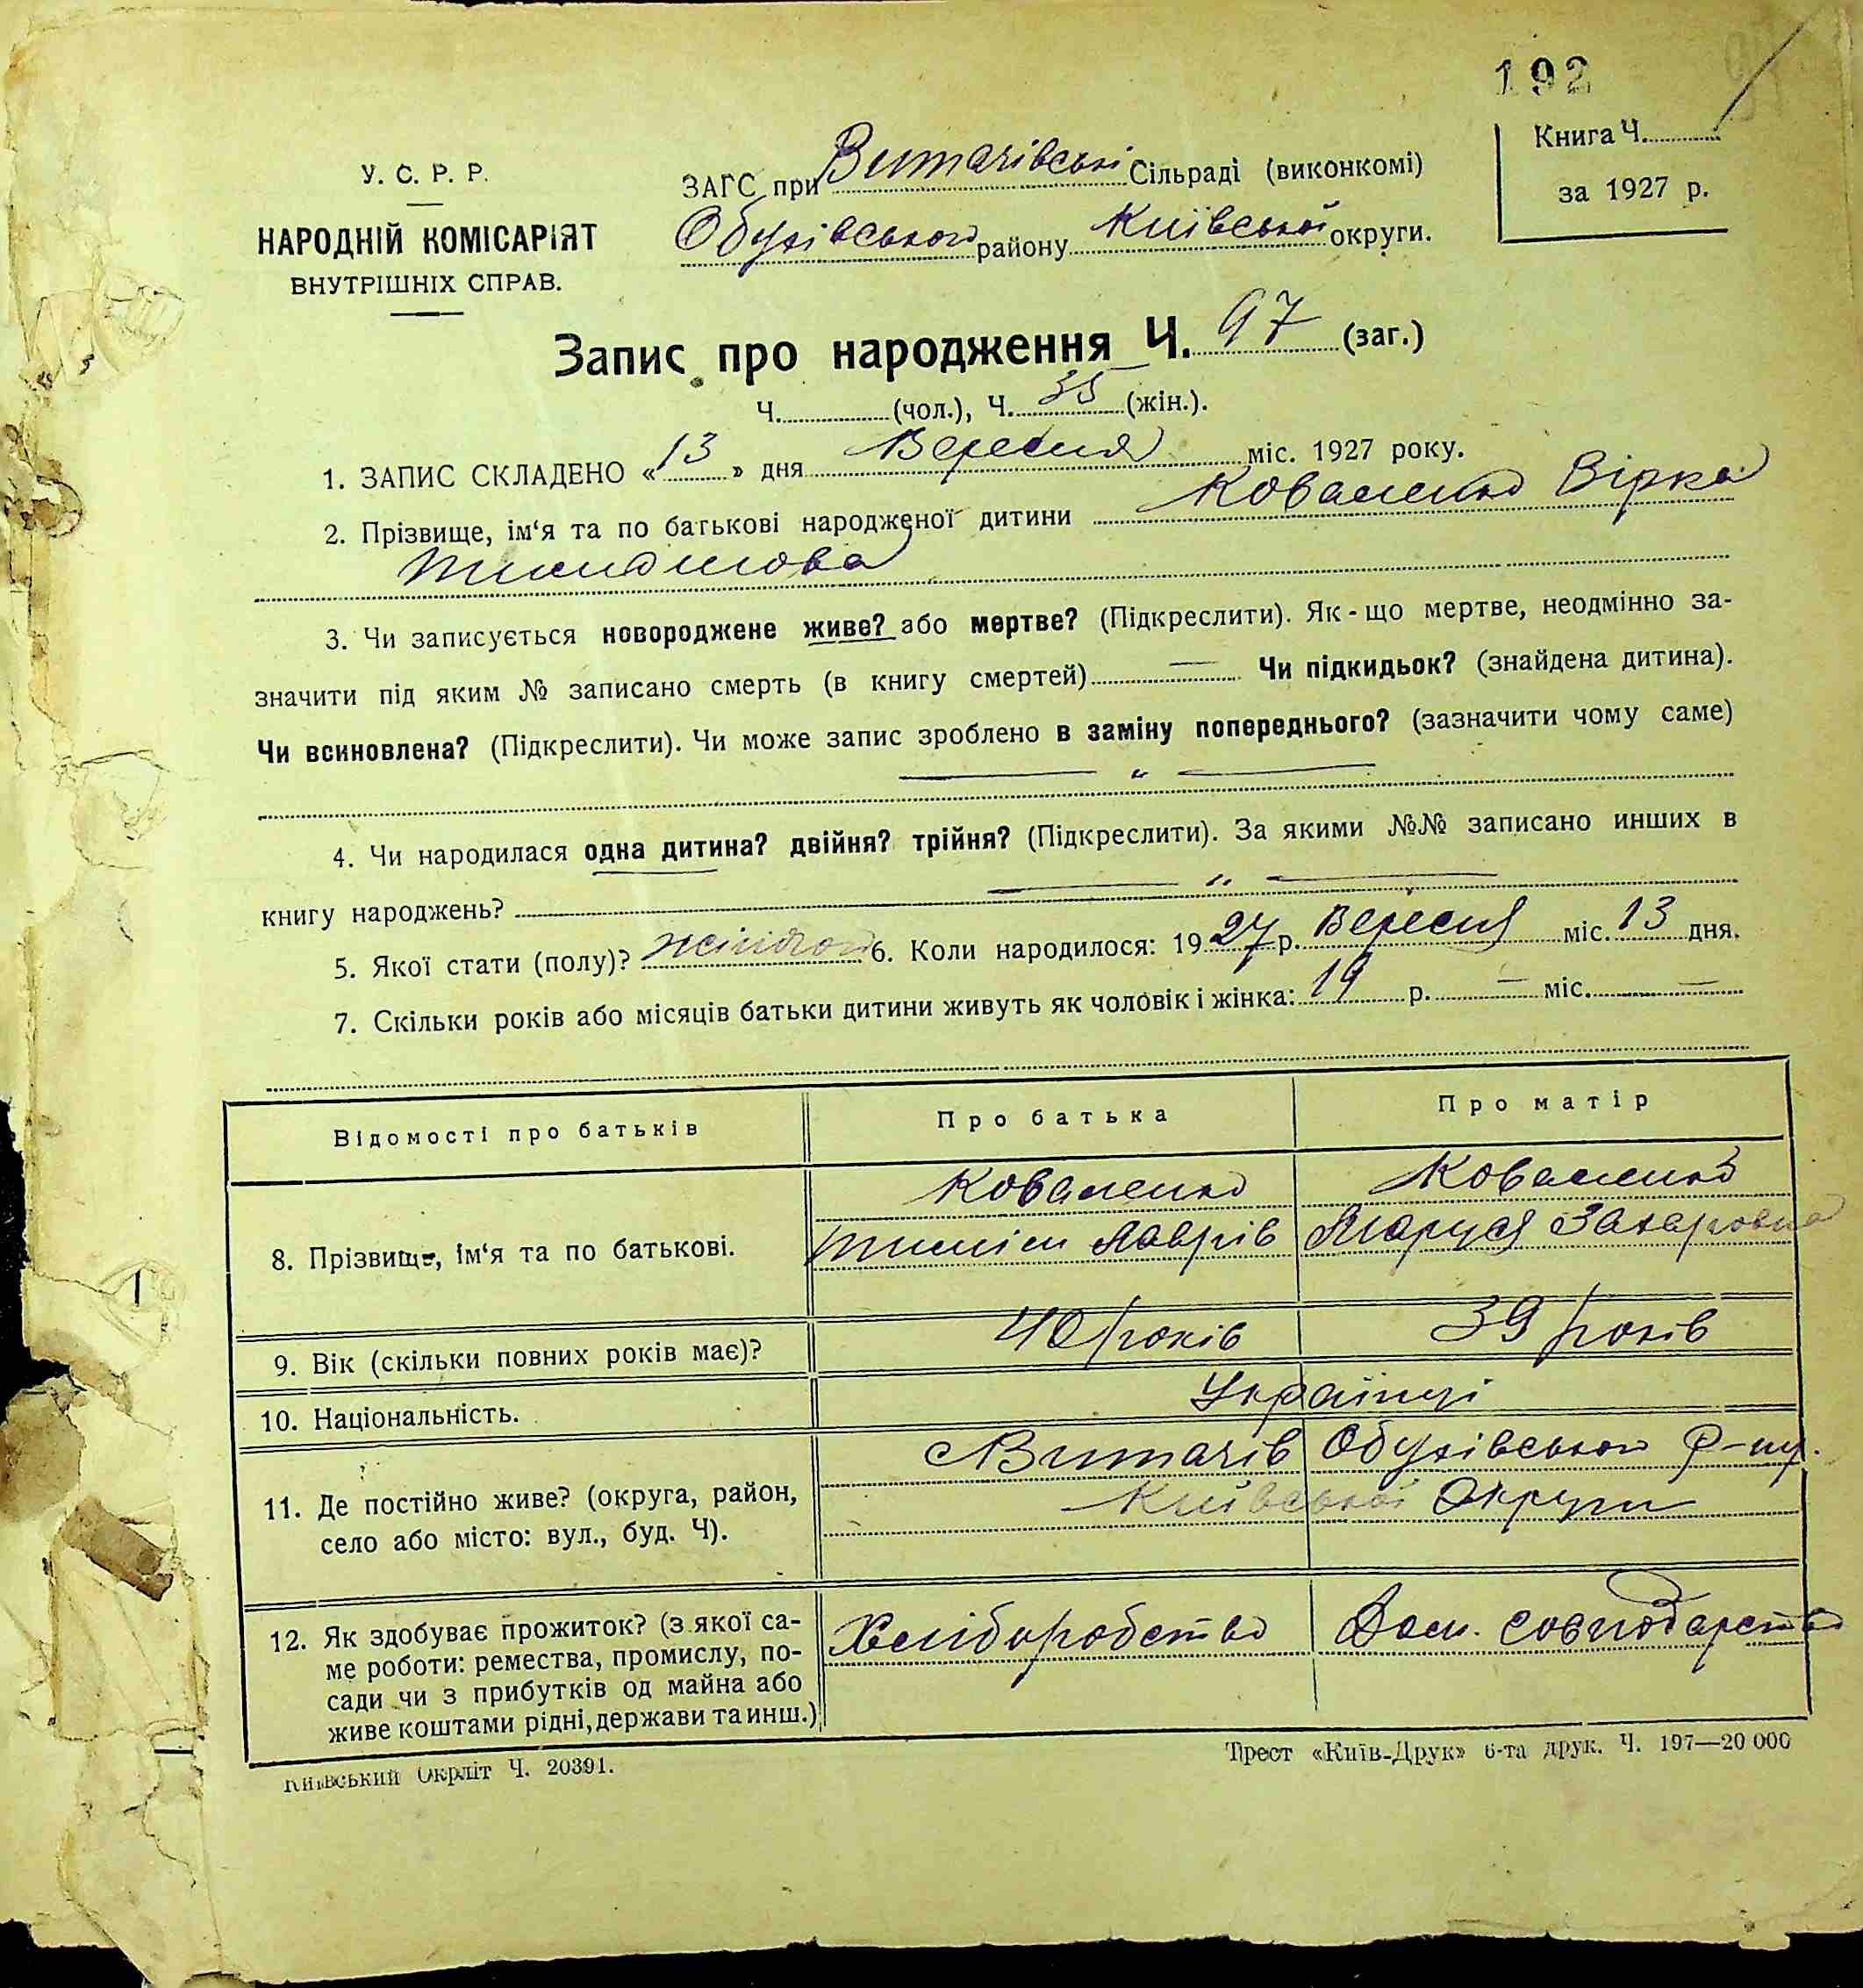 192
Книга Ч.
за 1927 р.
У. С. Р. Р.
НАРОДНІЙ КОМІСАРІЯТ
ВНУТРІШНІХ СПРАВ.
ЗАГС при Витачівські Сільраді (виконкомі)
Обухівського району Київської округи.
Запис про народження Ч. 97 (заг.)
Ч. (чол.), Ч. 35 (жін.).
1. ЗАПИС СКЛАДЕНО «13» дня Вересня міс. 1927 року.
2. Прізвище, ім'я та по батькові народженої дитини Коваленко Вірка
3. Чи записується новороджене живе? або мертве? (Підкреслити). Як-що мертве, неодмінно за-
значити під яким № записано смерть (в книгу смертей) — Чи підкидьок? (знайдена дитина).
Чи всиновлена? (Підкреслити). Чи може запис зроблено в заміну попереднього? (зазначити чому саме)
— „ —
4. Чи народилася одна дитина? двійня? трійня? (Підкреслити). За якими №№ записано инших в
книгу народжень? — „ —
5. Якої стати (полу)? жіночої 6. Коли народилося: 1927 р. Вересня міс. 13 дня.
7. Скільки років або місяців батьки дитини живуть як чоловік і жінка: 19 р. — міс. —
Відомості про батьків Про батька Про матір
8. Прізвище, ім'я та по батькові. Коваленко Коваленко
Лаврів Маруся Захаровна
9. Вік (скільки повних років має)? 40 років 39 років
10. Національність. Українці
11. Де постійно живе? (округа, район,
село або місто: вул., буд. Ч).
с Витачів Обухівського Р-ну.
Київської Округи
12. Як здобуває прожиток? (з якої са-
ме роботи: ремества, промислу, по-
сади чи з прибутків од майна або
живе коштами рідні, держави та инш.)
Хліборобство Дом. господарство
Київський Окрліт Ч. 20391.
Трест «Київ-Друк» 6-та друк. Ч. 197—20 000